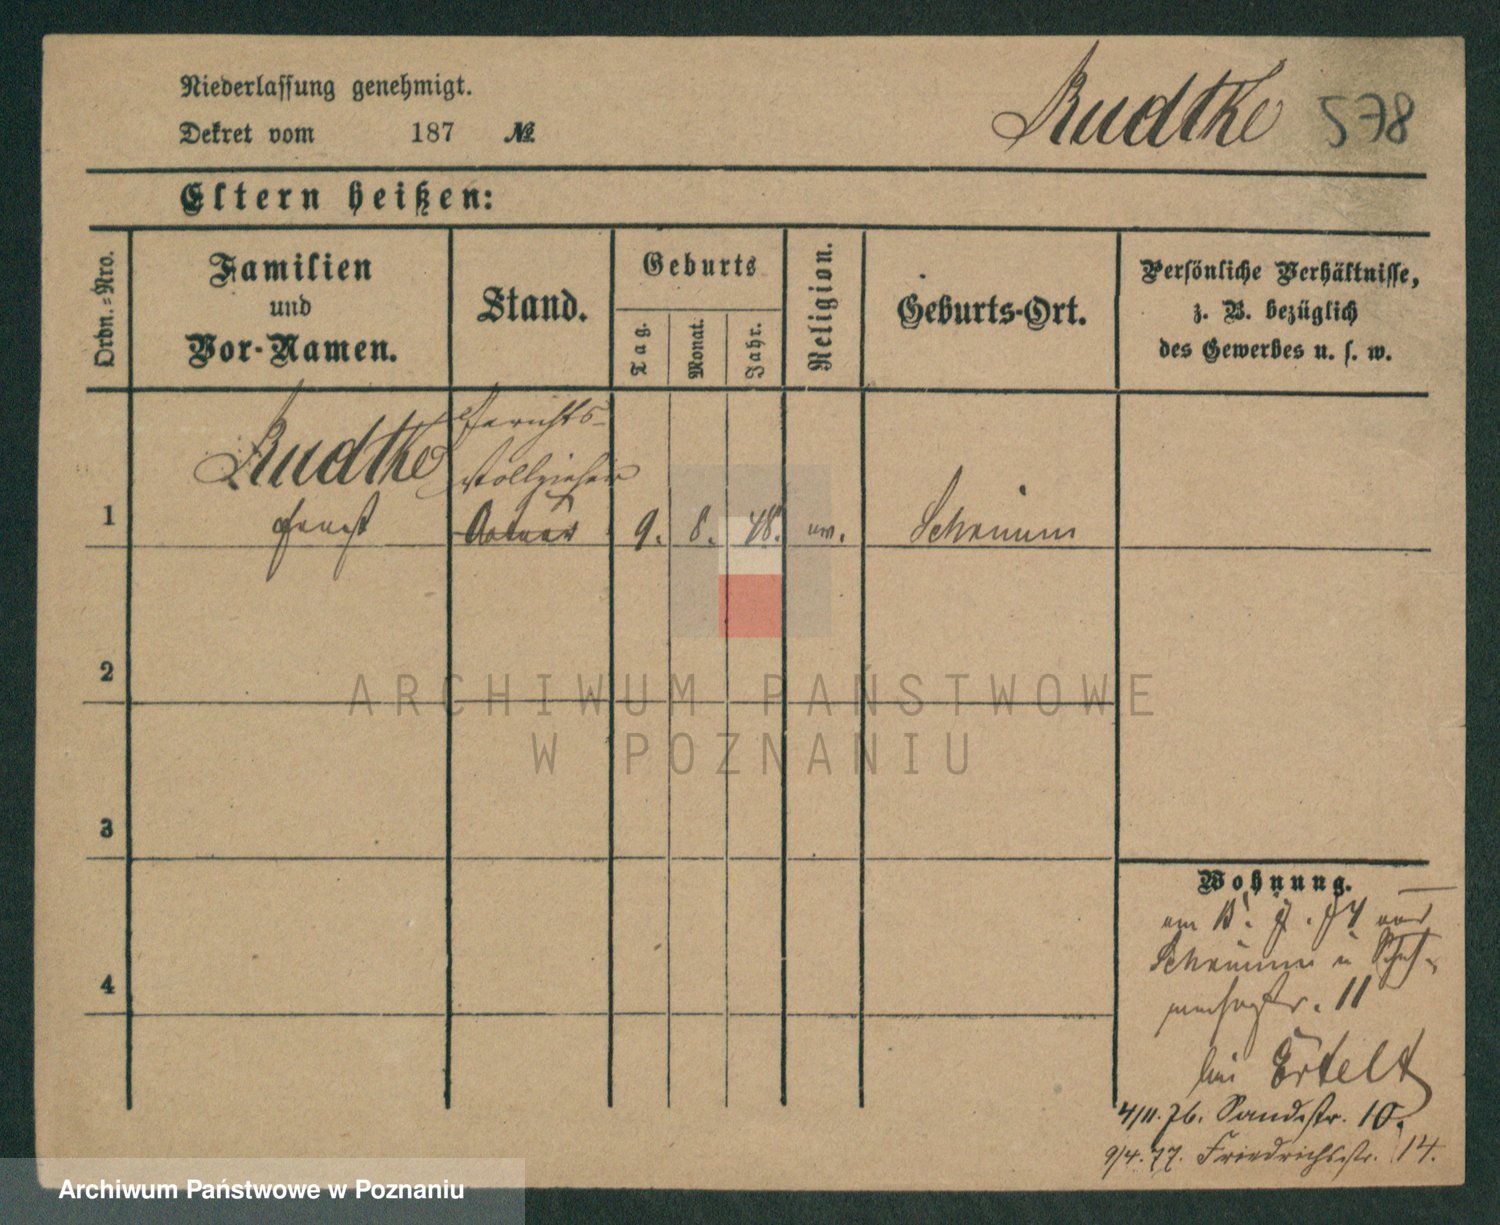 Niederlassung genehmigt.
Dekret vom 187 №
Rudtke 578
Eltern heißen:
Ordn.-Nro.
Familien
und
Vor-Namen.
Stand.
Geburts
Tag.
Monat.
Jahr.
Religion.
Geburts-Ort.
Persönliche Verhältnisse,
z. B. bezüglich
des Gewerbes u. s. w.
1
Rudtke
Ernst
Gerichts-
vollzieher
Actuar
9. 8. 48. ev.
Schrimm
2
3
4
Wohnung.
Schrimm
11
bei Ertelt
4/11. 76. Sandstr. 10.
9/4. 77. Friedrichsstr. 14.
ARCHIWUM PAŃSTWOWE
W POZNANIU
Archiwum Państwowe w Poznaniu